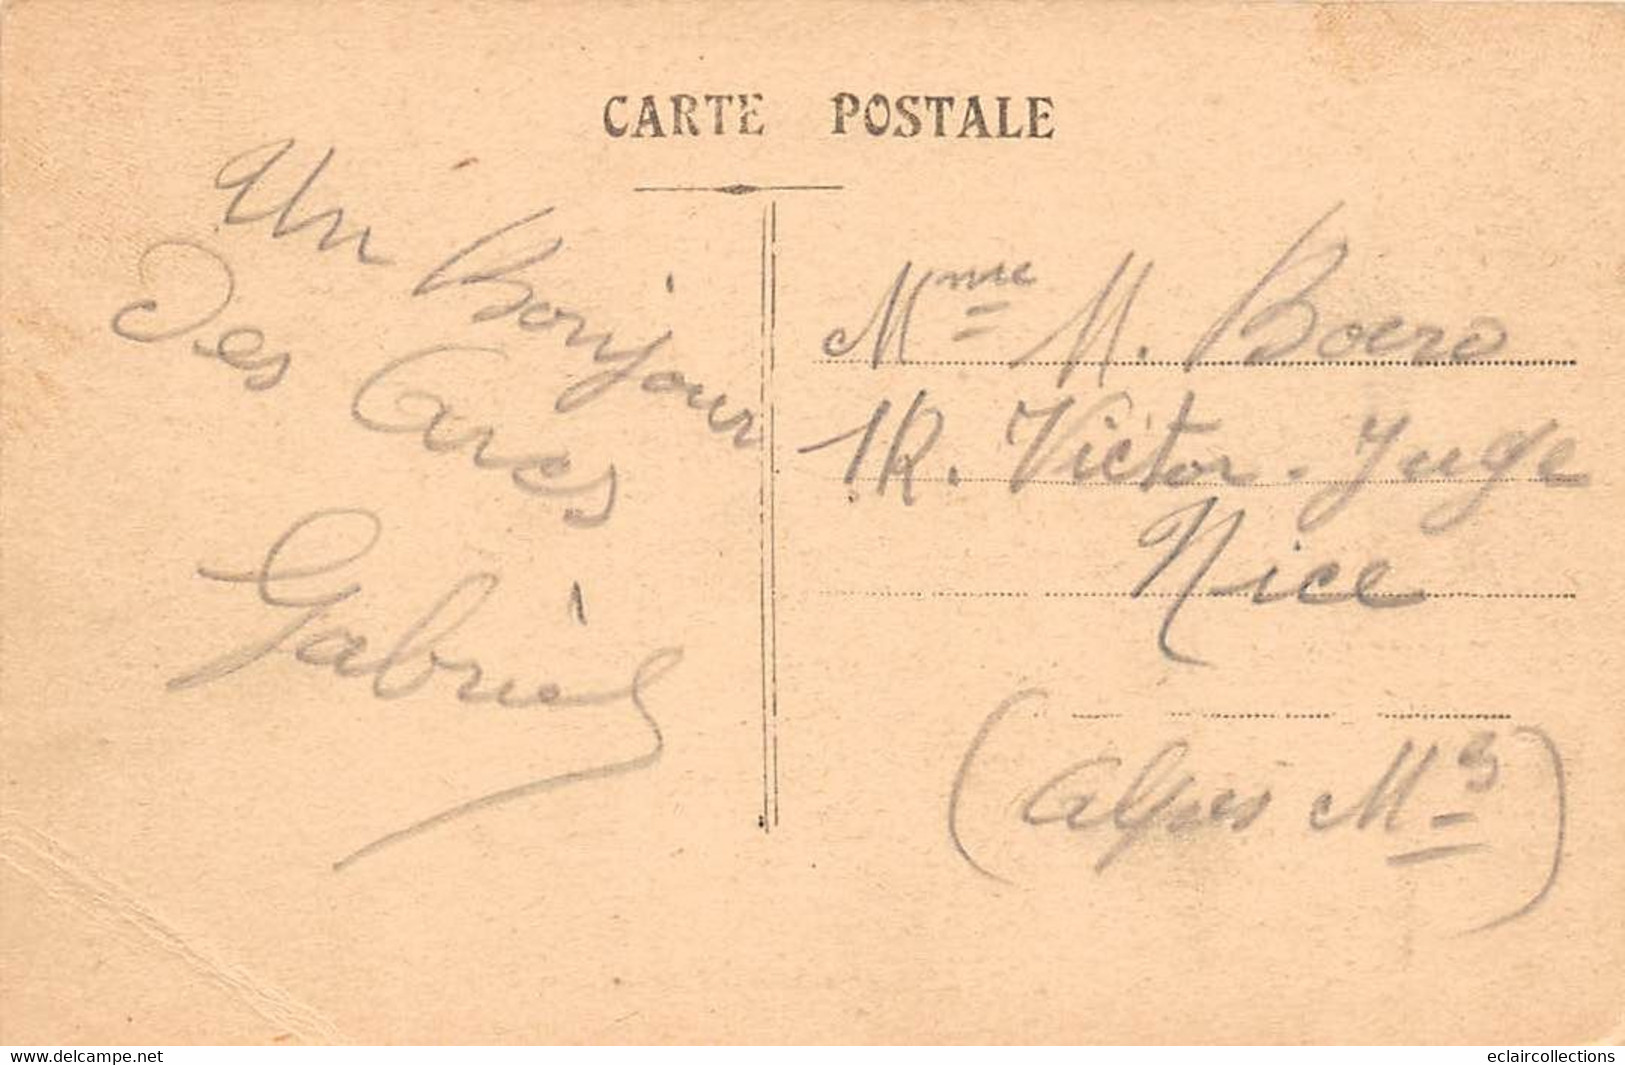 CARTE POSTALE
Un Bonjour
Des Arcs
Gabriel
Mme M. Boero
1 R. Victor-Juge
Nice
(Alpes Mes)
www.delcampe.net
eclaircollections